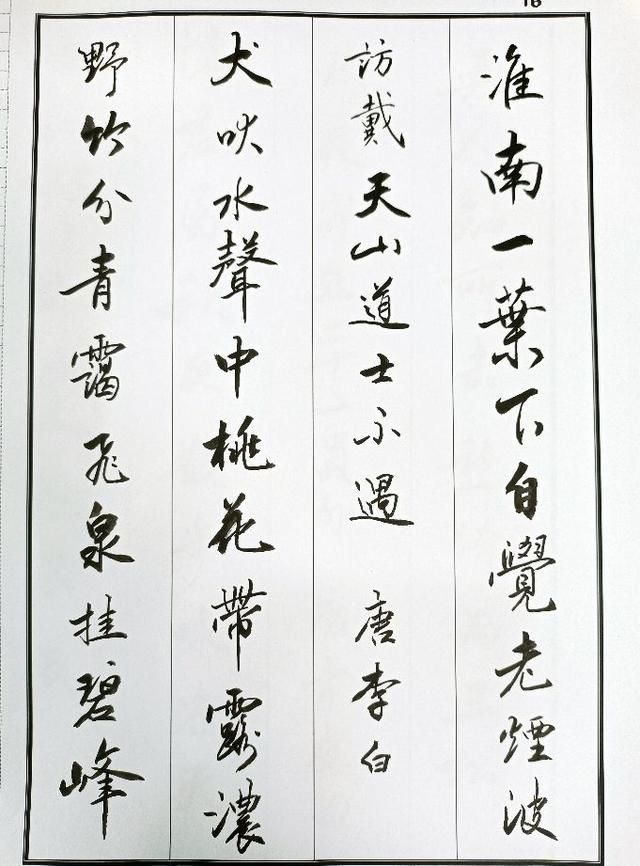 16
淮南一葉下自覺老煙波
訪戴天山道士不遇 唐李白
犬吠水聲中桃花帶露濃
野竹分青靄飛泉挂碧峰